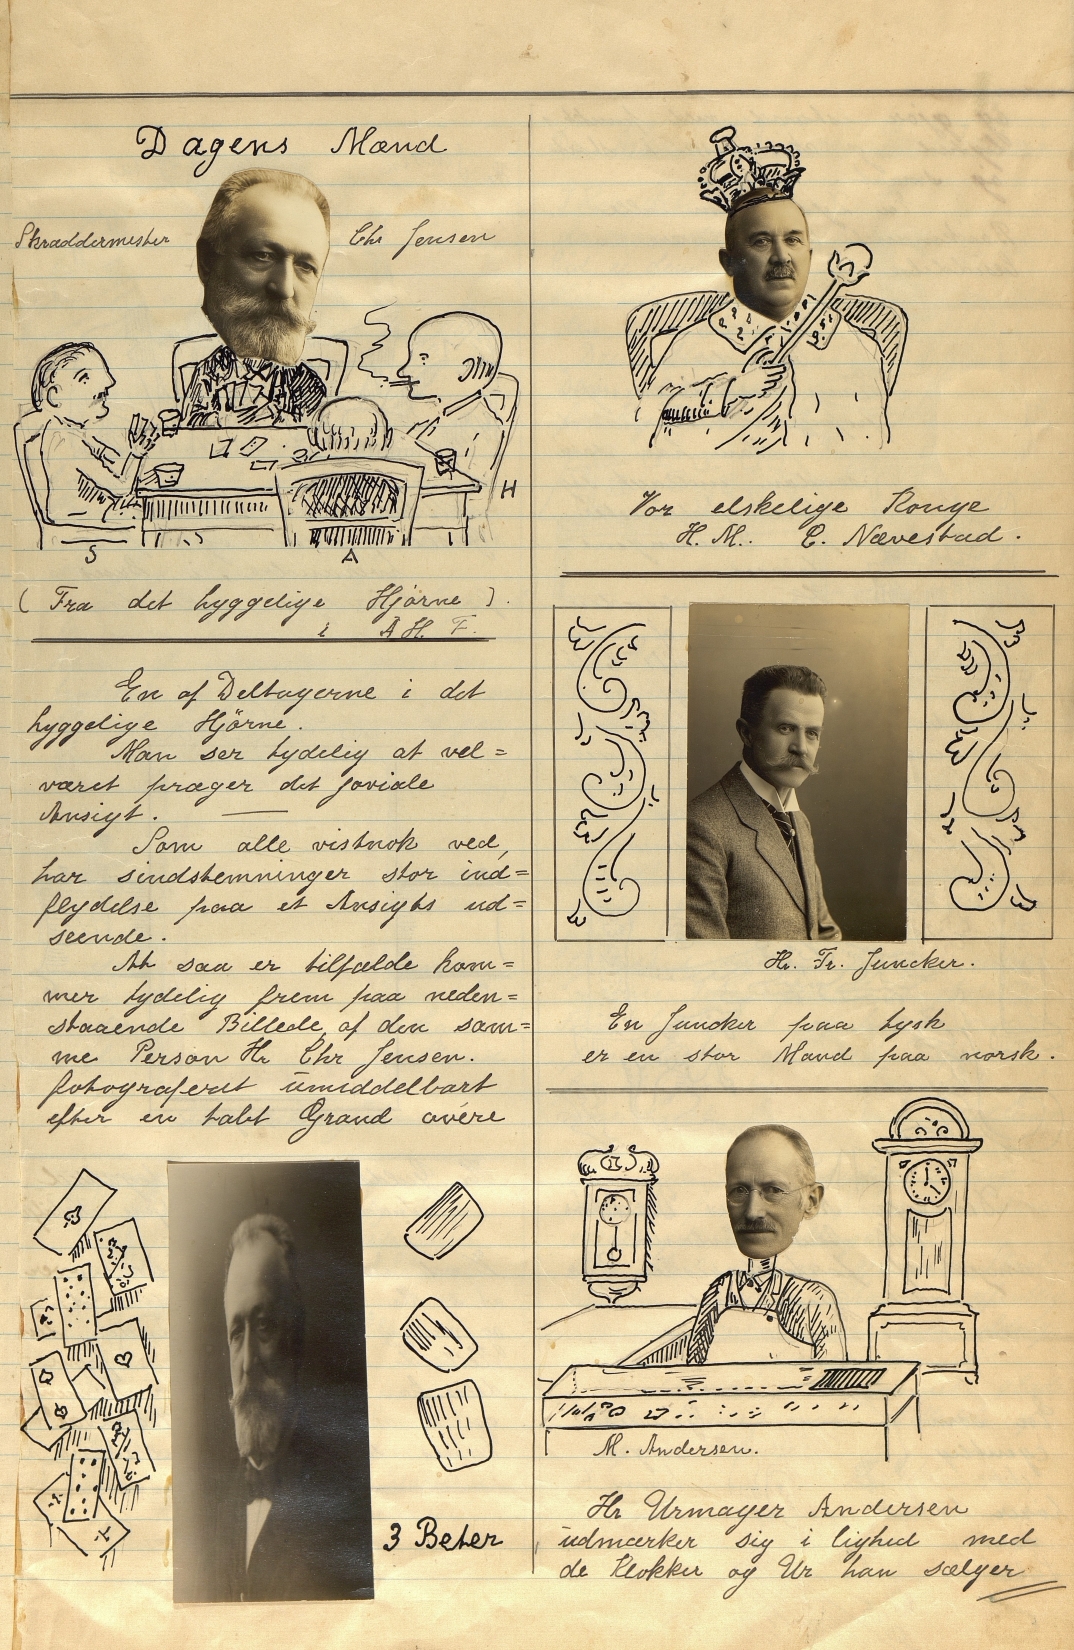 Dagens Mænd
Skræddermester Chr Jensen
H
S
A
( Fra det hyggelige Hjörne ).
i A H. F.
En af Deltagerne i det
hyggelige Hjörne.
Man ser tydelig at vel=
været præger det joviale
Ansigt. —
Som alle vistnok ved,
har sindstemninger stor ind=
flydelse paa et Ansigts ud=
seende.
At saa er tilfælde kom=
mer tydelig frem paa neden=
staaende Billede, af den sam=
me Person Hr Chr Jensen.
fotograferet umiddelbart
efter en tabt Grand overe
3 Beter
Vor elskelige Konge
H. M. C. Nævestad.
Hr. Fr. Juncker.
En Juncker paa tysk
er en stor Mand paa norsk.
M. Andersen.
Hr Urmager Andersen
udmærker sig i lighed med
de Klokker og Ur han sælger